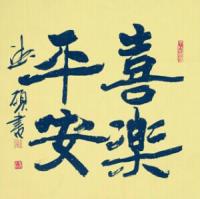 喜樂
平安
碩書